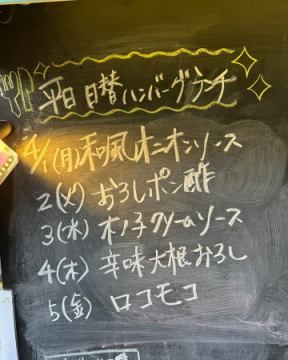 平日 日替ハンバーグランチ
4/1(月)和風オニオンソース
2(火)おろしポン酢
3(水)木ノ子クリームソース
4(木)辛味大根おろし
5(金)ロコモコ